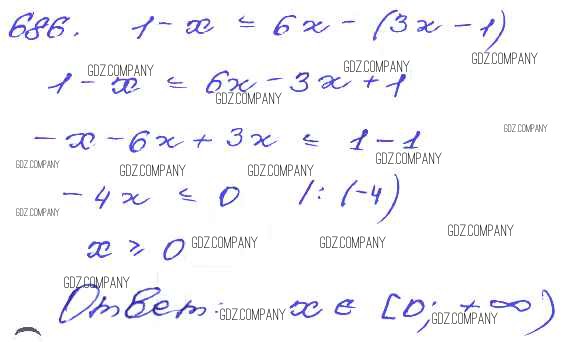 686. 1 - x ≤ 6x - (3x - 1)
GDZ.COMPANY GDZ.COMPANY GDZ.COMPANY
1 - x ≤ 6x - 3x + 1
GDZ.COMPANY
- x - 6x + 3x ≤ 1 - 1
GDZ.COMPANY
GDZ.COMPANY GDZ.COMPANY GDZ.COMPANY GDZ.COMPANY
- 4x ≤ 0 /: (-4)
GDZ.COMPANY
x ≥ 0
GDZ.COMPANY GDZ.COMPANY GDZ.COMPANY
GDZ.COMPANY
Ответ: x ∈ [0; +∞)
GDZ.COMPANY GDZ.COMPANY